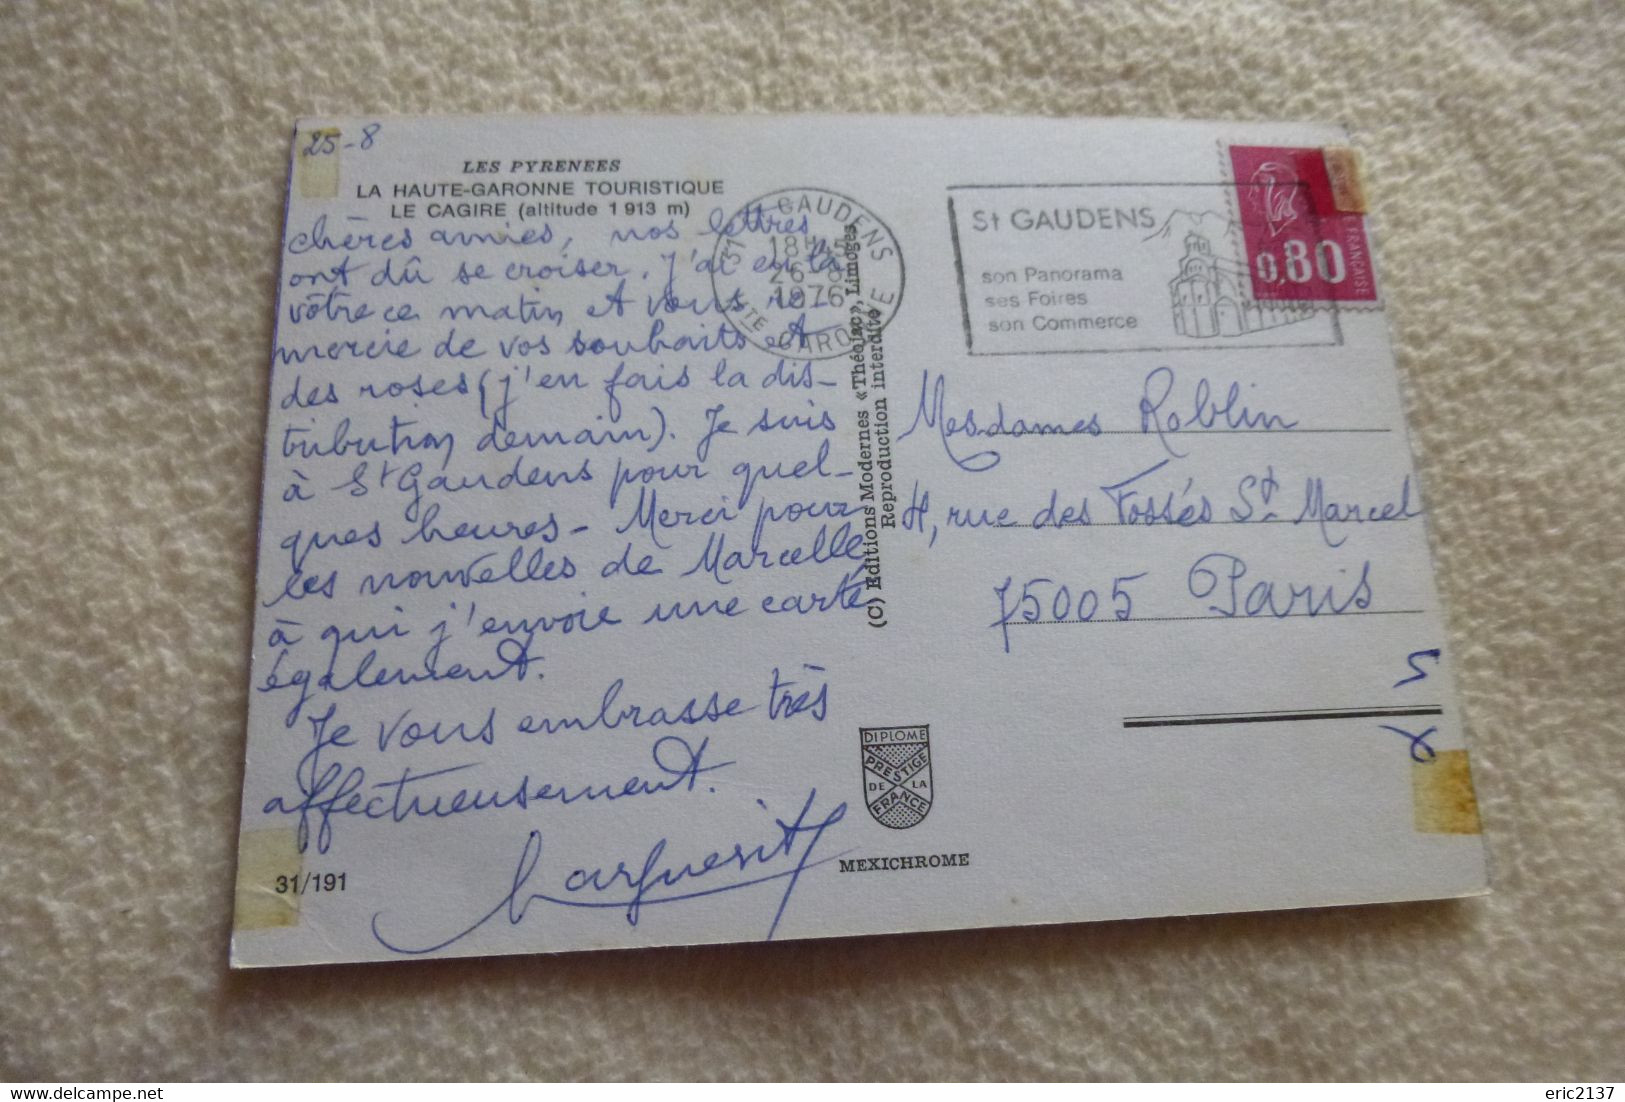 25-8
LES PYRENEES
LA HAUTE-GARONNE TOURISTIQUE
LE CAGIRE (altitude 1 913 m)
chères amies, nos lettres
ont dû se croiser. J'ai eu la
vôtre ce matin et vous re-
mercie de vos souhaits et
des roses (j'en fais la dis-
tribution demain). Je suis
à St Gaudens pour quel-
ques heures - Merci pour
les nouvelles de Marcelle
à qui j'envoie une carte
également.
Je vous embrasse très
affectueusement.
Marguerite
31/191
31 GAUDENS
18H
26-8
1976
HTE GARONNE
(C) Editions Modernes «Théojac», Limoges
Reproduction interdite
St GAUDENS
son Panorama
ses Foires
son Commerce
0,80
FRANÇAISE
Mesdames Roblin
rue des Fossés St Marcel
75005 Paris
5
DIPLOME
PRESTIGE
DE LA
FRANCE
MEXICHROME
eric2137